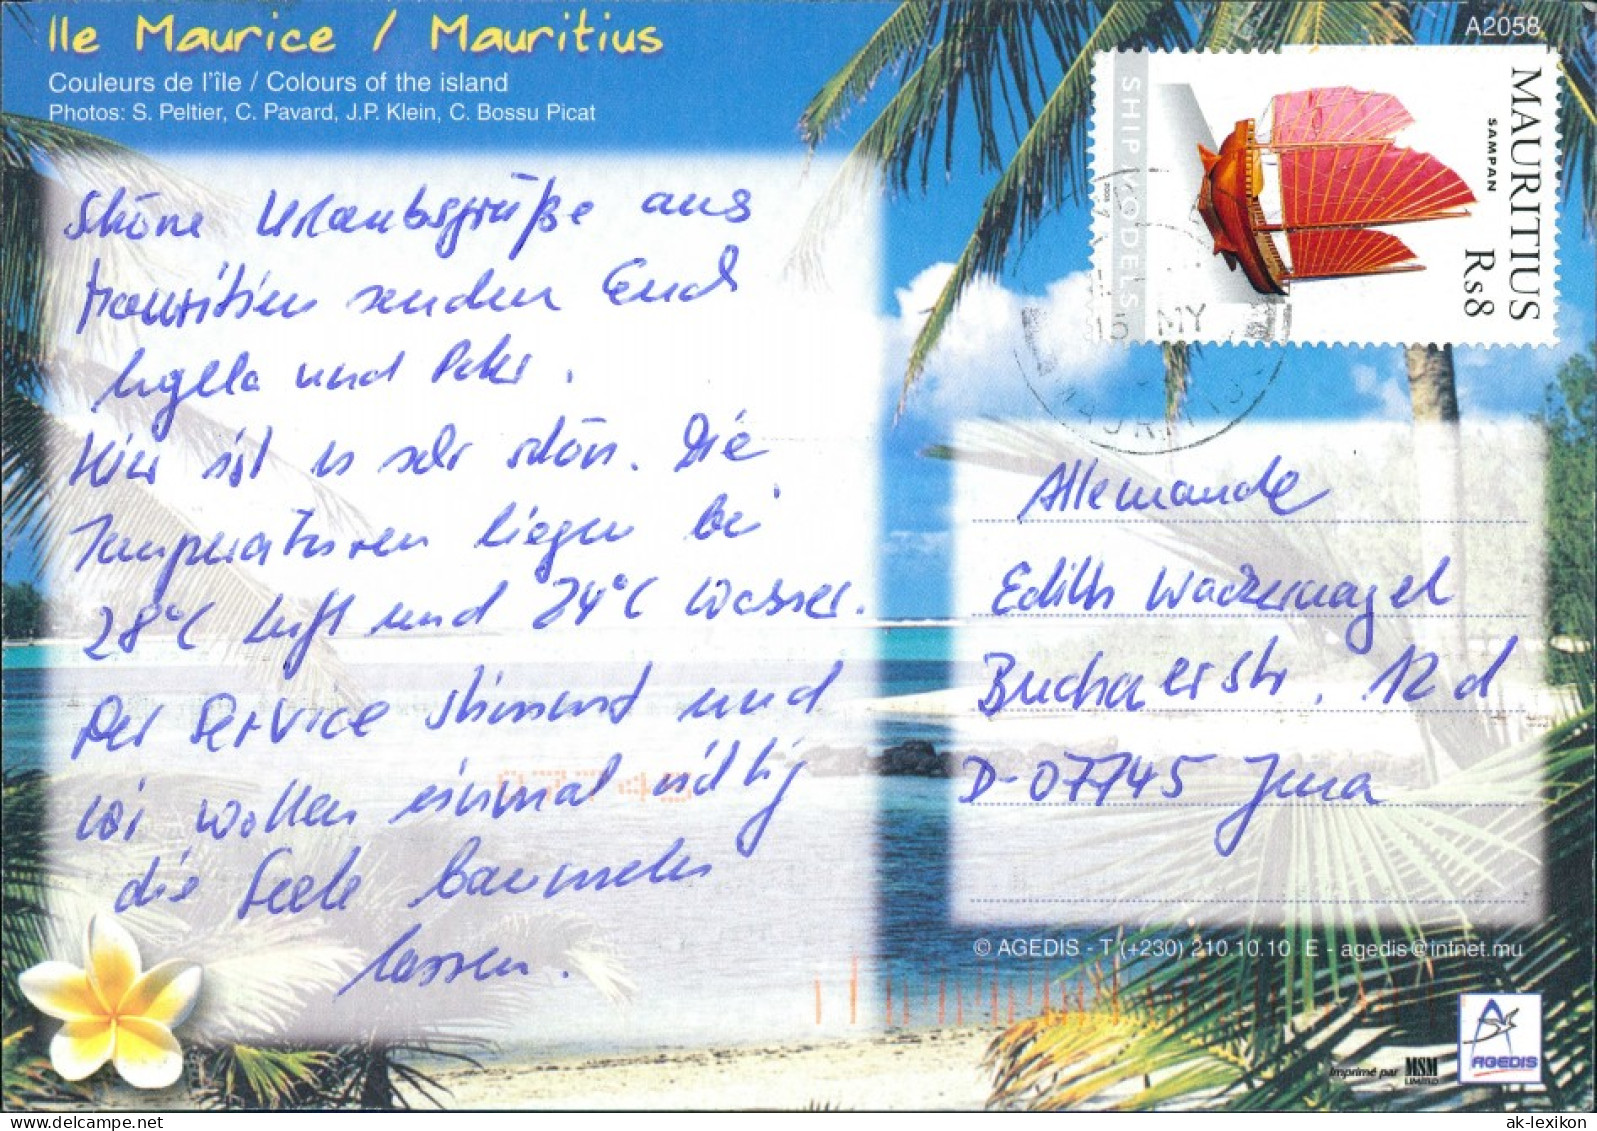 Ile Maurice / Mauritius
Couleurs de l'île / Colours of the island
Photos: S. Peltier, C. Pavard, J.P. Klein, C. Bossu Picat
A2058
SHIP MODELS
2005
MAURITIUS
SAMPAN
Rs8
15 MY
MAURITIUS
Schöne Urlaubsgrüße aus
Mauritius senden Euch
Angela und Peter.
Hier ist es sehr schön. Die
Temperaturen liegen bei
28°C Luft und 24°C Wasser.
Der Service stimmt und
wir wollen einmal richtig
die Seele baumeln
lassen.
Allemande
Edith Wackernagel
Buchaerstr. 12d
D-07745 Jena
07745
© AGEDIS - T (+230) 210.10.10 E - agedis@intnet.mu
Imprimé par MSM
LIMITED
AGEDIS
www.delcampe.net
ak-lexikon